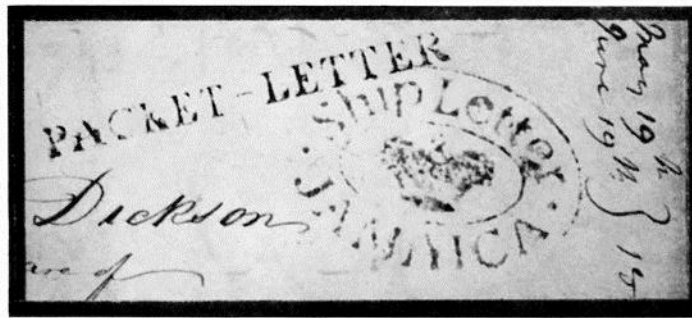 PACKET-LETTER
Ship Letter
JAMAICA
Dickson
of
May 19th
June 19th } 18